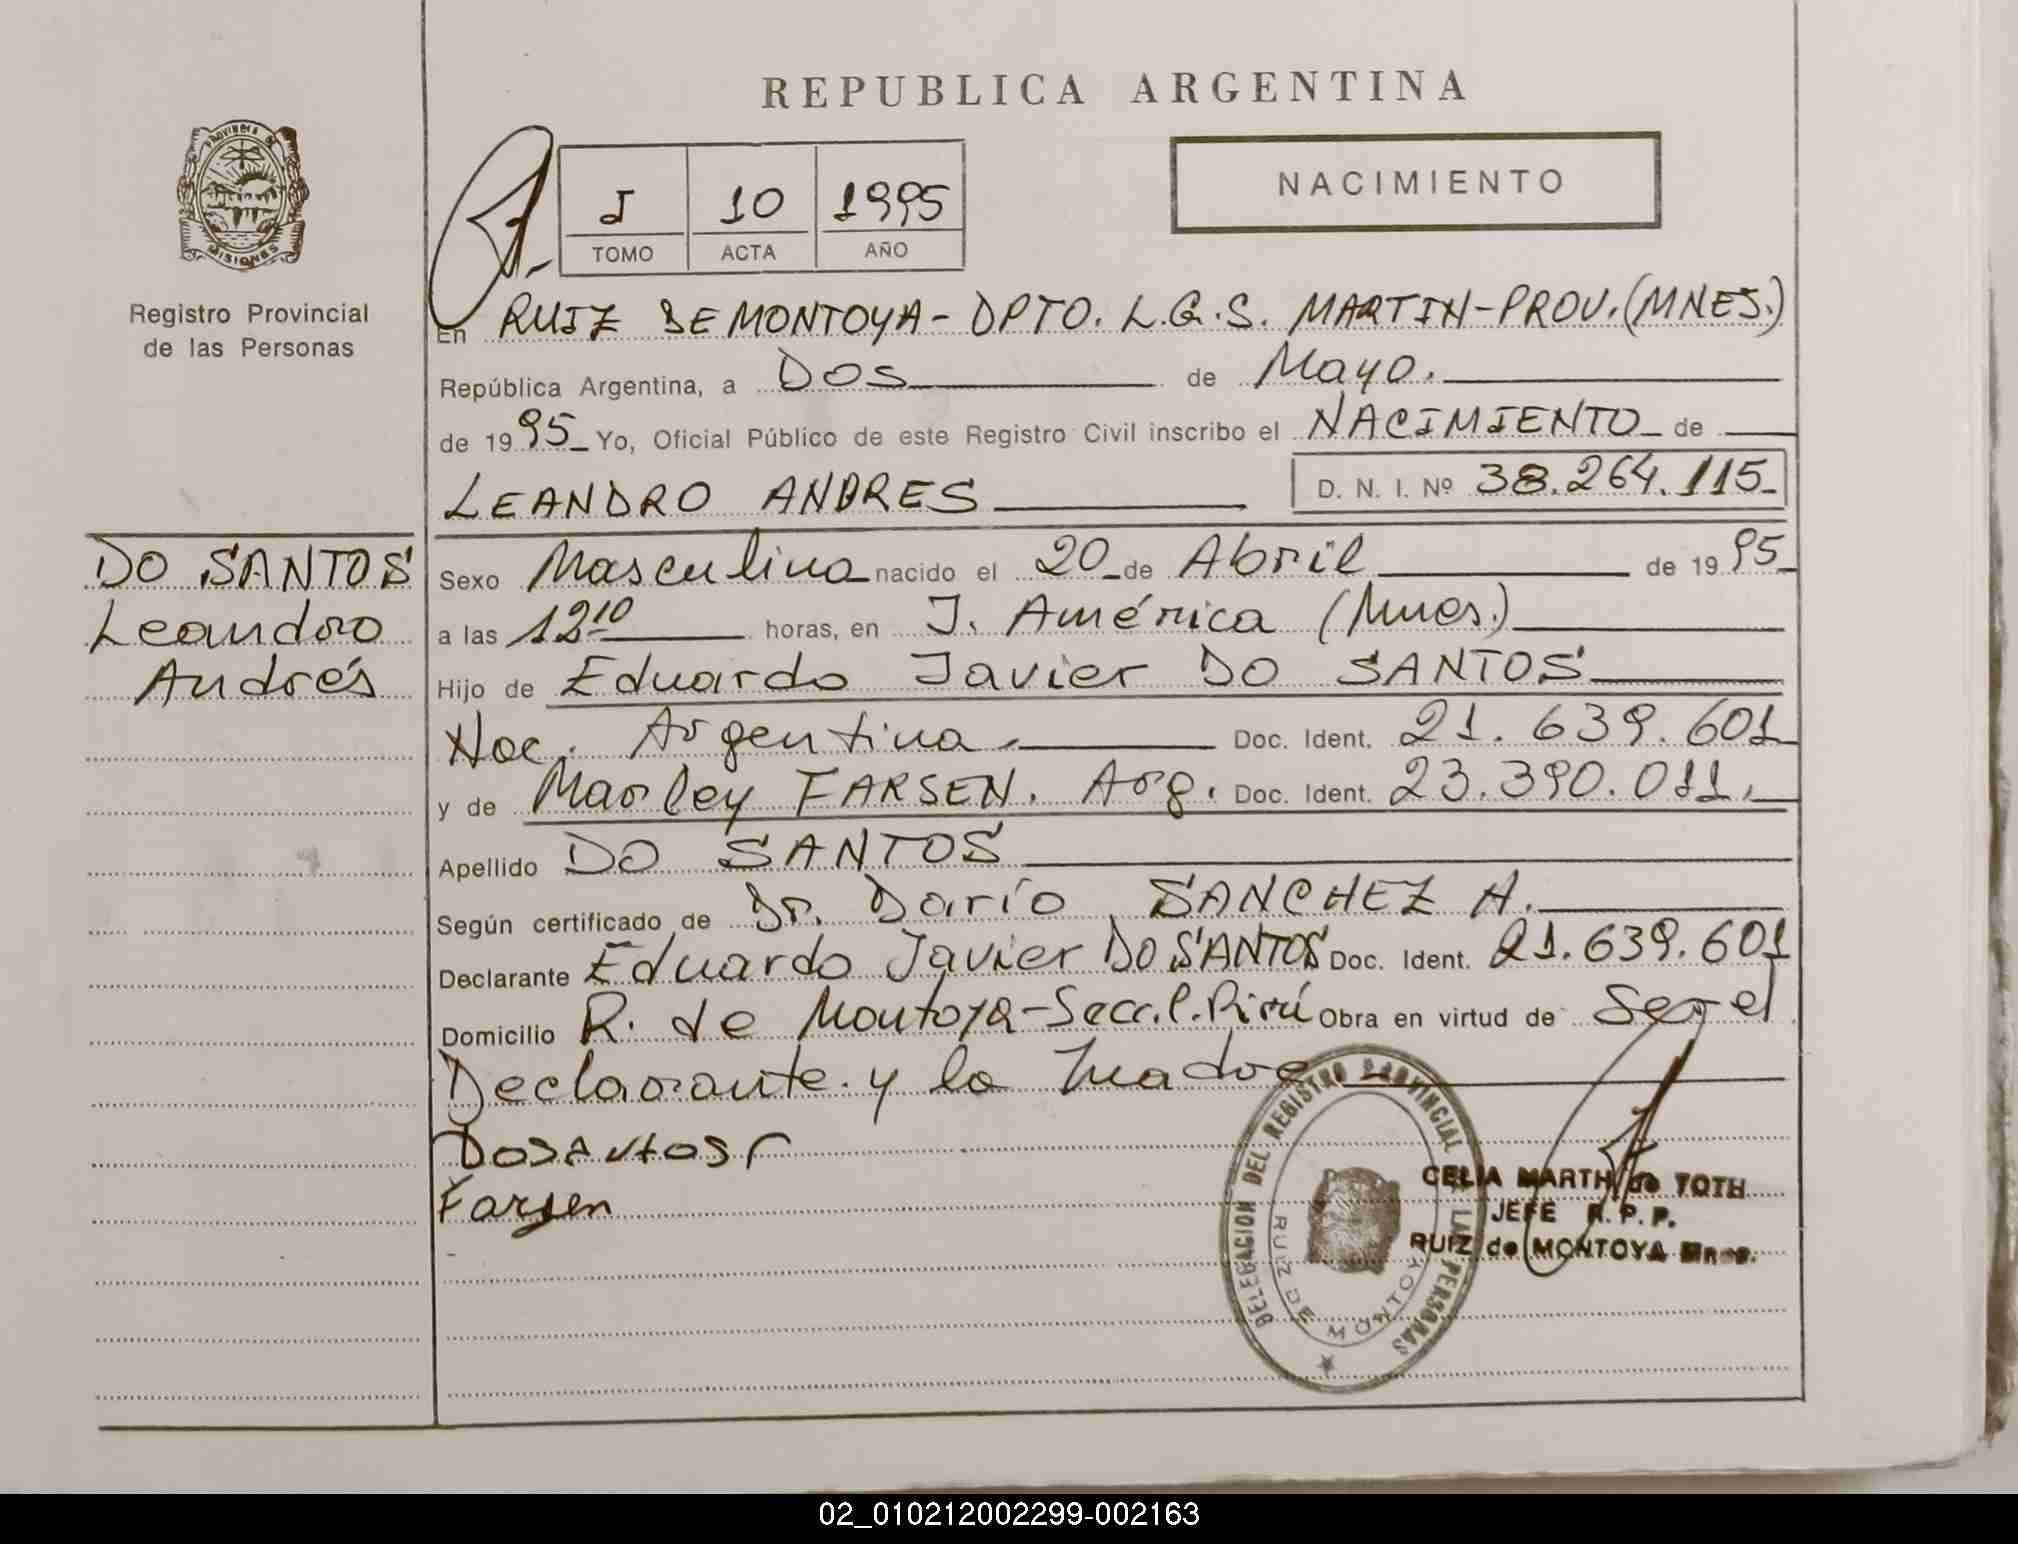 REPUBLICA ARGENTINA
PROVINCIA DE MISIONES
Registro Provincial
de las Personas
I 10 1995
TOMO ACTA AÑO
NACIMIENTO
En RUIZ DE MONTOYA - DPTO. L.G.S. MARTIN - PROV. (MNES.)
República Argentina, a Dos de Mayo.
de 1995 Yo, Oficial Público de este Registro Civil inscribo el NACIMIENTO de
LEANDRO ANDRES D. N. I. Nº 38.264.115
DO SANTOS
Leandro
Andrés
Sexo Masculino nacido el 20 de Abril de 1995
a las 12¹⁰ horas, en J. América (Mnes.)
Hijo de Eduardo Javier DO SANTOS
Nac. Argentina. Doc. Ident. 21.639.601
y de Marley FARSEN. Arg. Doc. Ident. 23.390.011.
Apellido DO SANTOS
Según certificado de Dr. Darío SANCHEZ A.
Declarante Eduardo Javier DO SANTOS Doc. Ident. 21.639.601
Domicilio R. de Montoya - Secc. C. Pirú Obra en virtud de Ser el
Declarante y la Madre
Dosantos
Farsen
DELEGACION DEL REGISTRO PROVINCIAL LAS PERSONAS
RUIZ DE MONTOYA
CELIA MARTH de TOTH
JEFE R. P. P.
RUIZ de MONTOYA Mnes.
02_010212002299-002163